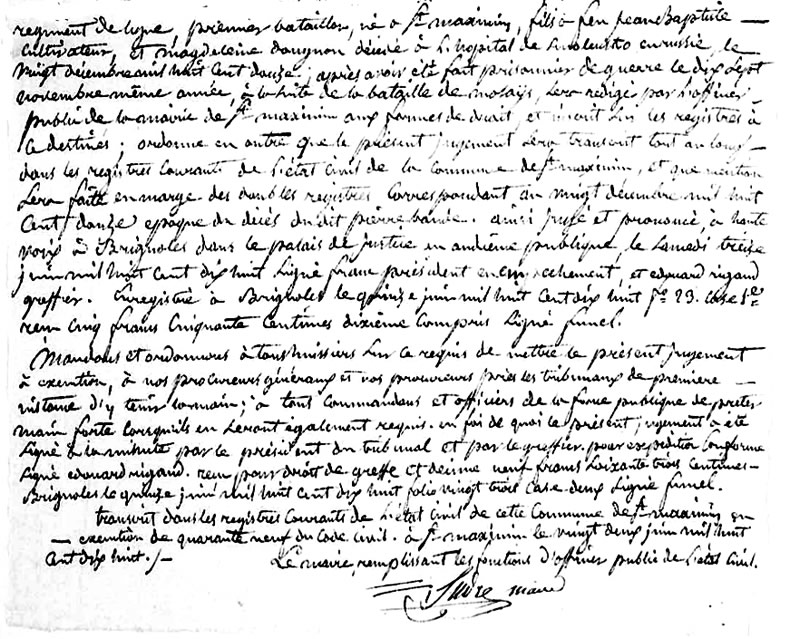 regiment de ligne, premier bataillon, né à St maximin, fils à feu Jean Baptiste —
Cultivateur, et magdeleine daugnon décédé à L'hopital de en russie, le
Vingt décembre mil huit Cent douze; après avoir été fait prisonnier de guerre le dix sept
novembre même année, à la suite de la bataille de, sera rédigé par L'officier
public de la mairie de St maximin aux formes de droit, et inscrit sur les registres à
Ce destinés; ordonne en outre que le présent jugement sera transcrit tout au long
dans les registres Courants de L'état Civil de la Commune de St maximin, et que mention
Sera faite en marge des doubles registres Correspondant au vingt décembre mil huit
Cent douze époque du décès du dit pierre. ainsi jugé et prononcé, à haute
voix à Brignoles dans le palais de justice en audience publique, le Samedi treize
juin mil huit Cent dix huit Signé franc président en empechement, et edouard rigaud
greffier. Enregistré à Brignoles le quinze juin mil huit Cent dix huit fo. 23. Case 1re.
reçu Cinq francs Cinquante Centimes dixième Compris Signé funel.
Mandons et ordonnons à tous huissiers sur ce requis de mettre le présent jugement
à exécution, à nos procureurs généraux et nos procureurs près les tribunaux de première —
instance d'y tenir la main; à tous Commandans et officiers de la force publique de preter
main forte Lorsqu'ils en Seront légalement requis. en foi de quoi le présent jugement a été
Signé à la minute par le président du tribunal et par le greffier. pour expédition Conforme
Signé edouard rigaud. reçu pour droit de greffe et décime neuf francs Soixante trois Centimes —
Brignoles le quinze juin mil huit Cent dix huit folio vingt trois Case deux Signé funel.
transcrit dans les registres Courants de L'état Civil de cette Commune de St maximin en
— exécution de quarante neuf du Code Civil. à St maximin le vingt deux juin mil huit
Cent dix huit. /—
Le maire, remplissant les fonctions d'officier public de L'état Civil.
maire